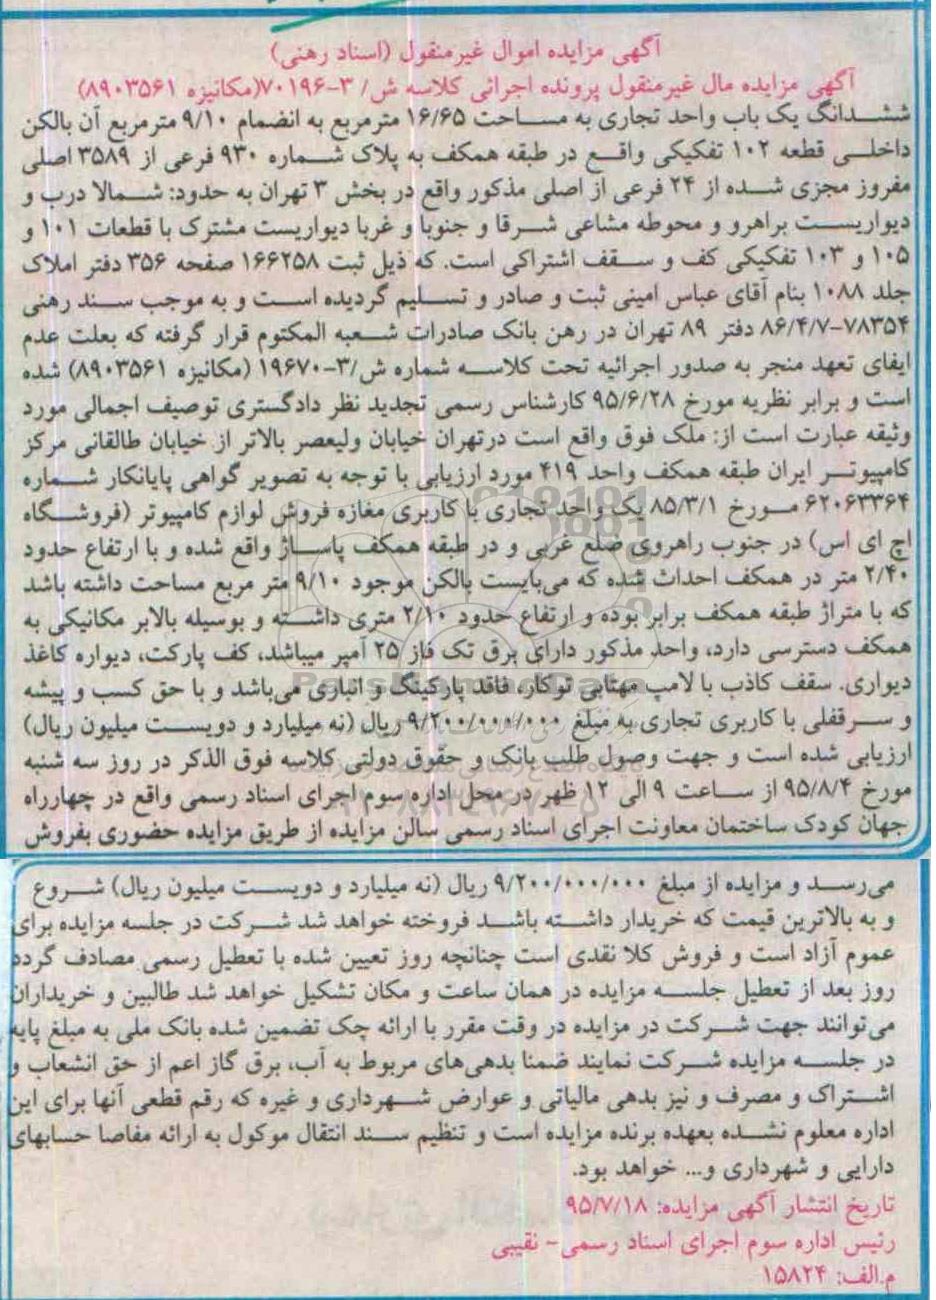 آگهی مزایده اموال غیرمنقول (اسناد رهنی)
آگهی مزایده مال غیرمنقول پرونده اجرائی کلاسه ش/ ۳-۷۰۱۹۶(مکانیزه ۸۹۰۳۵۶۱)
ششدانگ یک باب واحد تجاری به مساحت ۱۶/۶۵ مترمربع به انضمام ۹/۱۰ مترمربع آن بالکن
داخلی قطعه ۱۰۲ تفکیکی واقع در طبقه همکف به پلاک شماره ۹۳۰ فرعی از ۳۵۸۹ اصلی
مفروز مجزی شده از ۲۴ فرعی از اصلی مذکور واقع در بخش ۳ تهران به حدود: شمالا درب و
دیواریست براهرو و محوطه مشاعی شرقا و جنوبا و غربا دیواریست مشترک با قطعات ۱۰۱ و
۱۰۵ و ۱۰۳ تفکیکی کف و سقف اشتراکی است. که ذیل ثبت ۱۶۶۲۵۸ صفحه ۳۵۶ دفتر املاک
جلد ۱۰۸۸ بنام آقای عباس امینی ثبت و صادر و تسلیم گردیده است و به موجب سند رهنی
۷۸۳۵۴-۸۶/۴/۷ دفتر ۸۹ تهران در رهن بانک صادرات شعبه المکتوم قرار گرفته که بعلت عدم
ایفای تعهد منجر به صدور اجرائیه تحت کلاسه شماره ش/۳-۱۹۶۷۰ (مکانیزه ۸۹۰۳۵۶۱) شده
است و برابر نظریه مورخ ۹۵/۶/۲۸ کارشناس رسمی تجدید نظر دادگستری توصیف اجمالی مورد
وثیقه عبارت است از: ملک فوق واقع است درتهران خیابان ولیعصر بالاتر از خیابان طالقانی مرکز
کامپیوتر ایران طبقه همکف واحد ۴۱۹ مورد ارزیابی با توجه به تصویر گواهی پایانکار شماره
۶۲۰۶۳۳۶۴ مورخ ۸۵/۳/۱ یک واحد تجاری با کاربری مغازه فروش لوازم کامپیوتر (فروشگاه
اچ ای اس) در جنوب راهروی ضلع غربی و در طبقه همکف پاساژ واقع شده و با ارتفاع حدود
۲/۴۰ متر در همکف احداث شده که می‌بایست بالکن موجود ۹/۱۰ متر مربع مساحت داشته باشد
که با متراژ طبقه همکف برابر بوده و ارتفاع حدود ۲/۱۰ متری داشته و بوسیله بالابر مکانیکی به
همکف دسترسی دارد، واحد مذکور دارای برق تک فاز ۲۵ آمپر میباشد، کف پارکت، دیواره کاغذ
دیواری. سقف کاذب با لامپ مهتابی توکار، فاقد پارکینگ و انباری می‌باشد و با حق کسب و پیشه
و سرقفلی با کاربری تجاری به مبلغ ۹/۲۰۰/۰۰۰/۰۰۰ ریال (نه میلیارد و دویست میلیون ریال)
ارزیابی شده است و جهت وصول طلب بانک و حقوق دولتی کلاسه فوق الذکر در روز سه شنبه
مورخ ۹۵/۸/۴ از ساعت ۹ الی ۱۲ ظهر در محل اداره سوم اجرای اسناد رسمی واقع در چهارراه
جهان کودک ساختمان معاونت اجرای اسناد رسمی سالن مزایده از طریق مزایده حضوری بفروش
می‌رسد و مزایده از مبلغ ۹/۲۰۰/۰۰۰/۰۰۰ ریال (نه میلیارد و دویست میلیون ریال) شروع
و به بالاترین قیمت که خریدار داشته باشد فروخته خواهد شد شرکت در جلسه مزایده برای
عموم آزاد است و فروش کلا نقدی است چنانچه روز تعیین شده با تعطیل رسمی مصادف گردد
روز بعد از تعطیل جلسه مزایده در همان ساعت و مکان تشکیل خواهد شد طالبین و خریداران
می‌توانند جهت شرکت در مزایده در وقت مقرر با ارائه چک تضمین شده بانک ملی به مبلغ پایه
در جلسه مزایده شرکت نمایند ضمنا بدهی‌های مربوط به آب، برق گاز اعم از حق انشعاب و
اشتراک و مصرف و نیز بدهی مالیاتی و عوارض شهرداری و غیره که رقم قطعی آنها برای این
اداره معلوم نشده بعهده برنده مزایده است و تنظیم سند انتقال موکول به ارائه مفاصا حسابهای
دارایی و شهرداری و... خواهد بود.
تاریخ انتشار آگهی مزایده: ۹۵/۷/۱۸
رئیس اداره سوم اجرای اسناد رسمی- نقیبی
م.الف: ۱۵۸۲۴
ParsNamadData